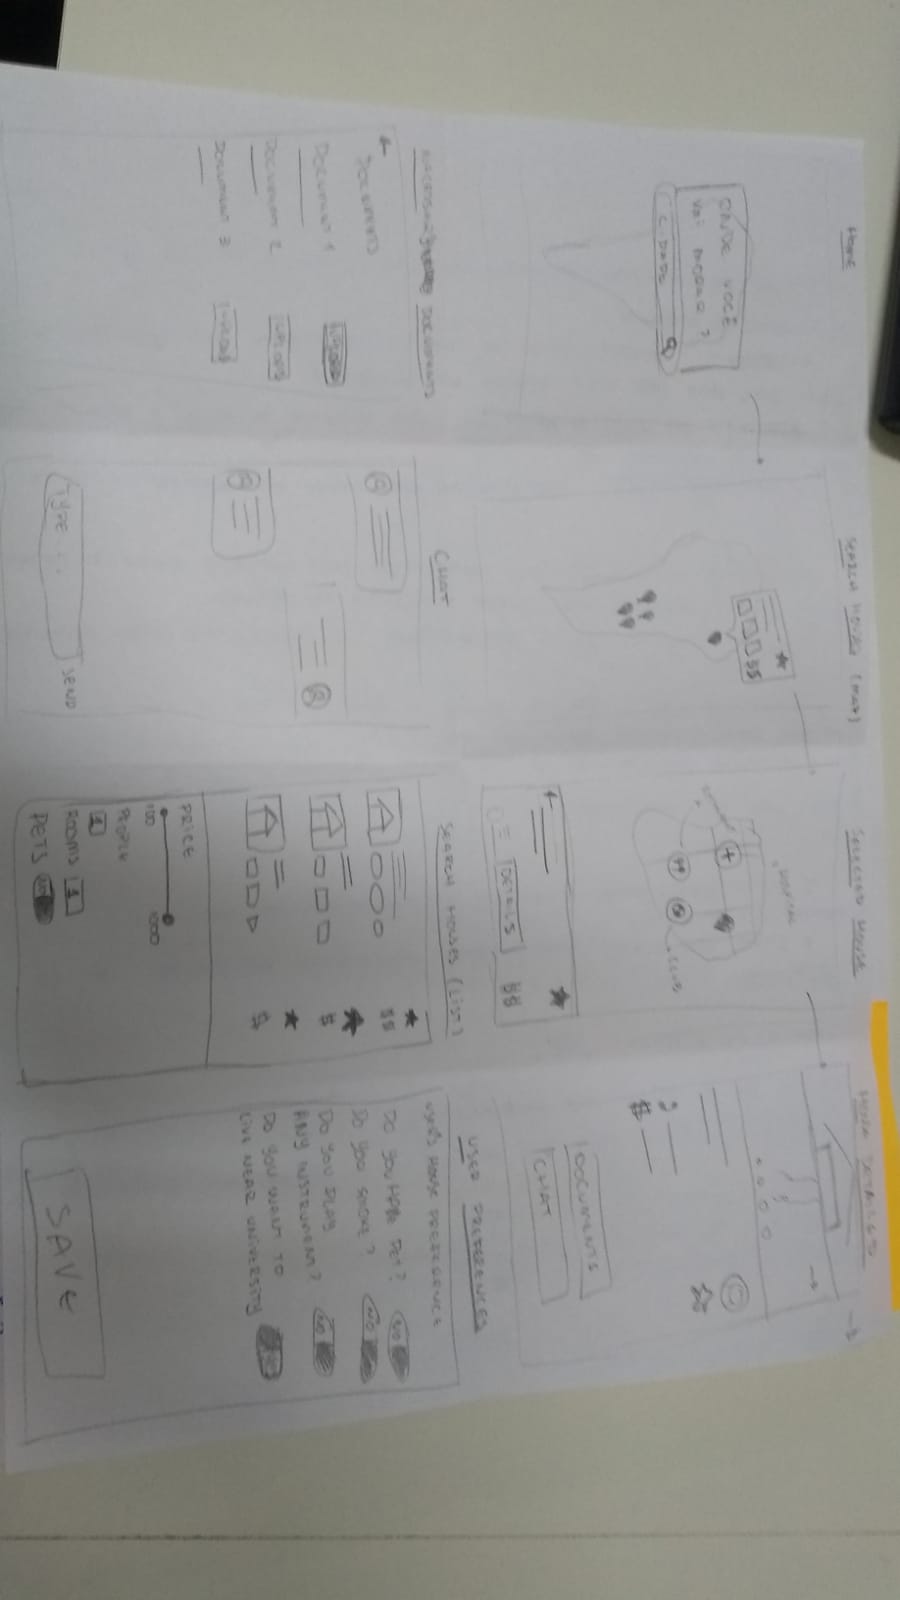 HOME
ONDE VOCÊ
VAI MORAR ?
CIDADE
SEARCH HOUSES (MAP)
$$
SELECTED HOUSE
HOSPITAL
CLUB
DETAILS
$$
HOUSE DETAILS
$
DOCUMENTS
CHAT
DOCUMENTS
DOCUMENTS
DOCUMENT 1
UPLOAD
DOCUMENT 2
UPLOAD
DOCUMENT 3
UPLOAD
CHAT
TYPE ...
SEND
SEARCH HOUSES (LIST)
$$
$
$
PRICE
100
1000
PEOPLE
1
ROOMS 1
PETS
USER PREFERENCES
USER'S HOUSE PREFERENCE
DO YOU HAVE PET? NO
DO YOU SMOKE? NO
DO YOU PLAY
ANY INSTRUMENT? NO
DO YOU WANT TO
LIVE NEAR UNIVERSITY
SAVE